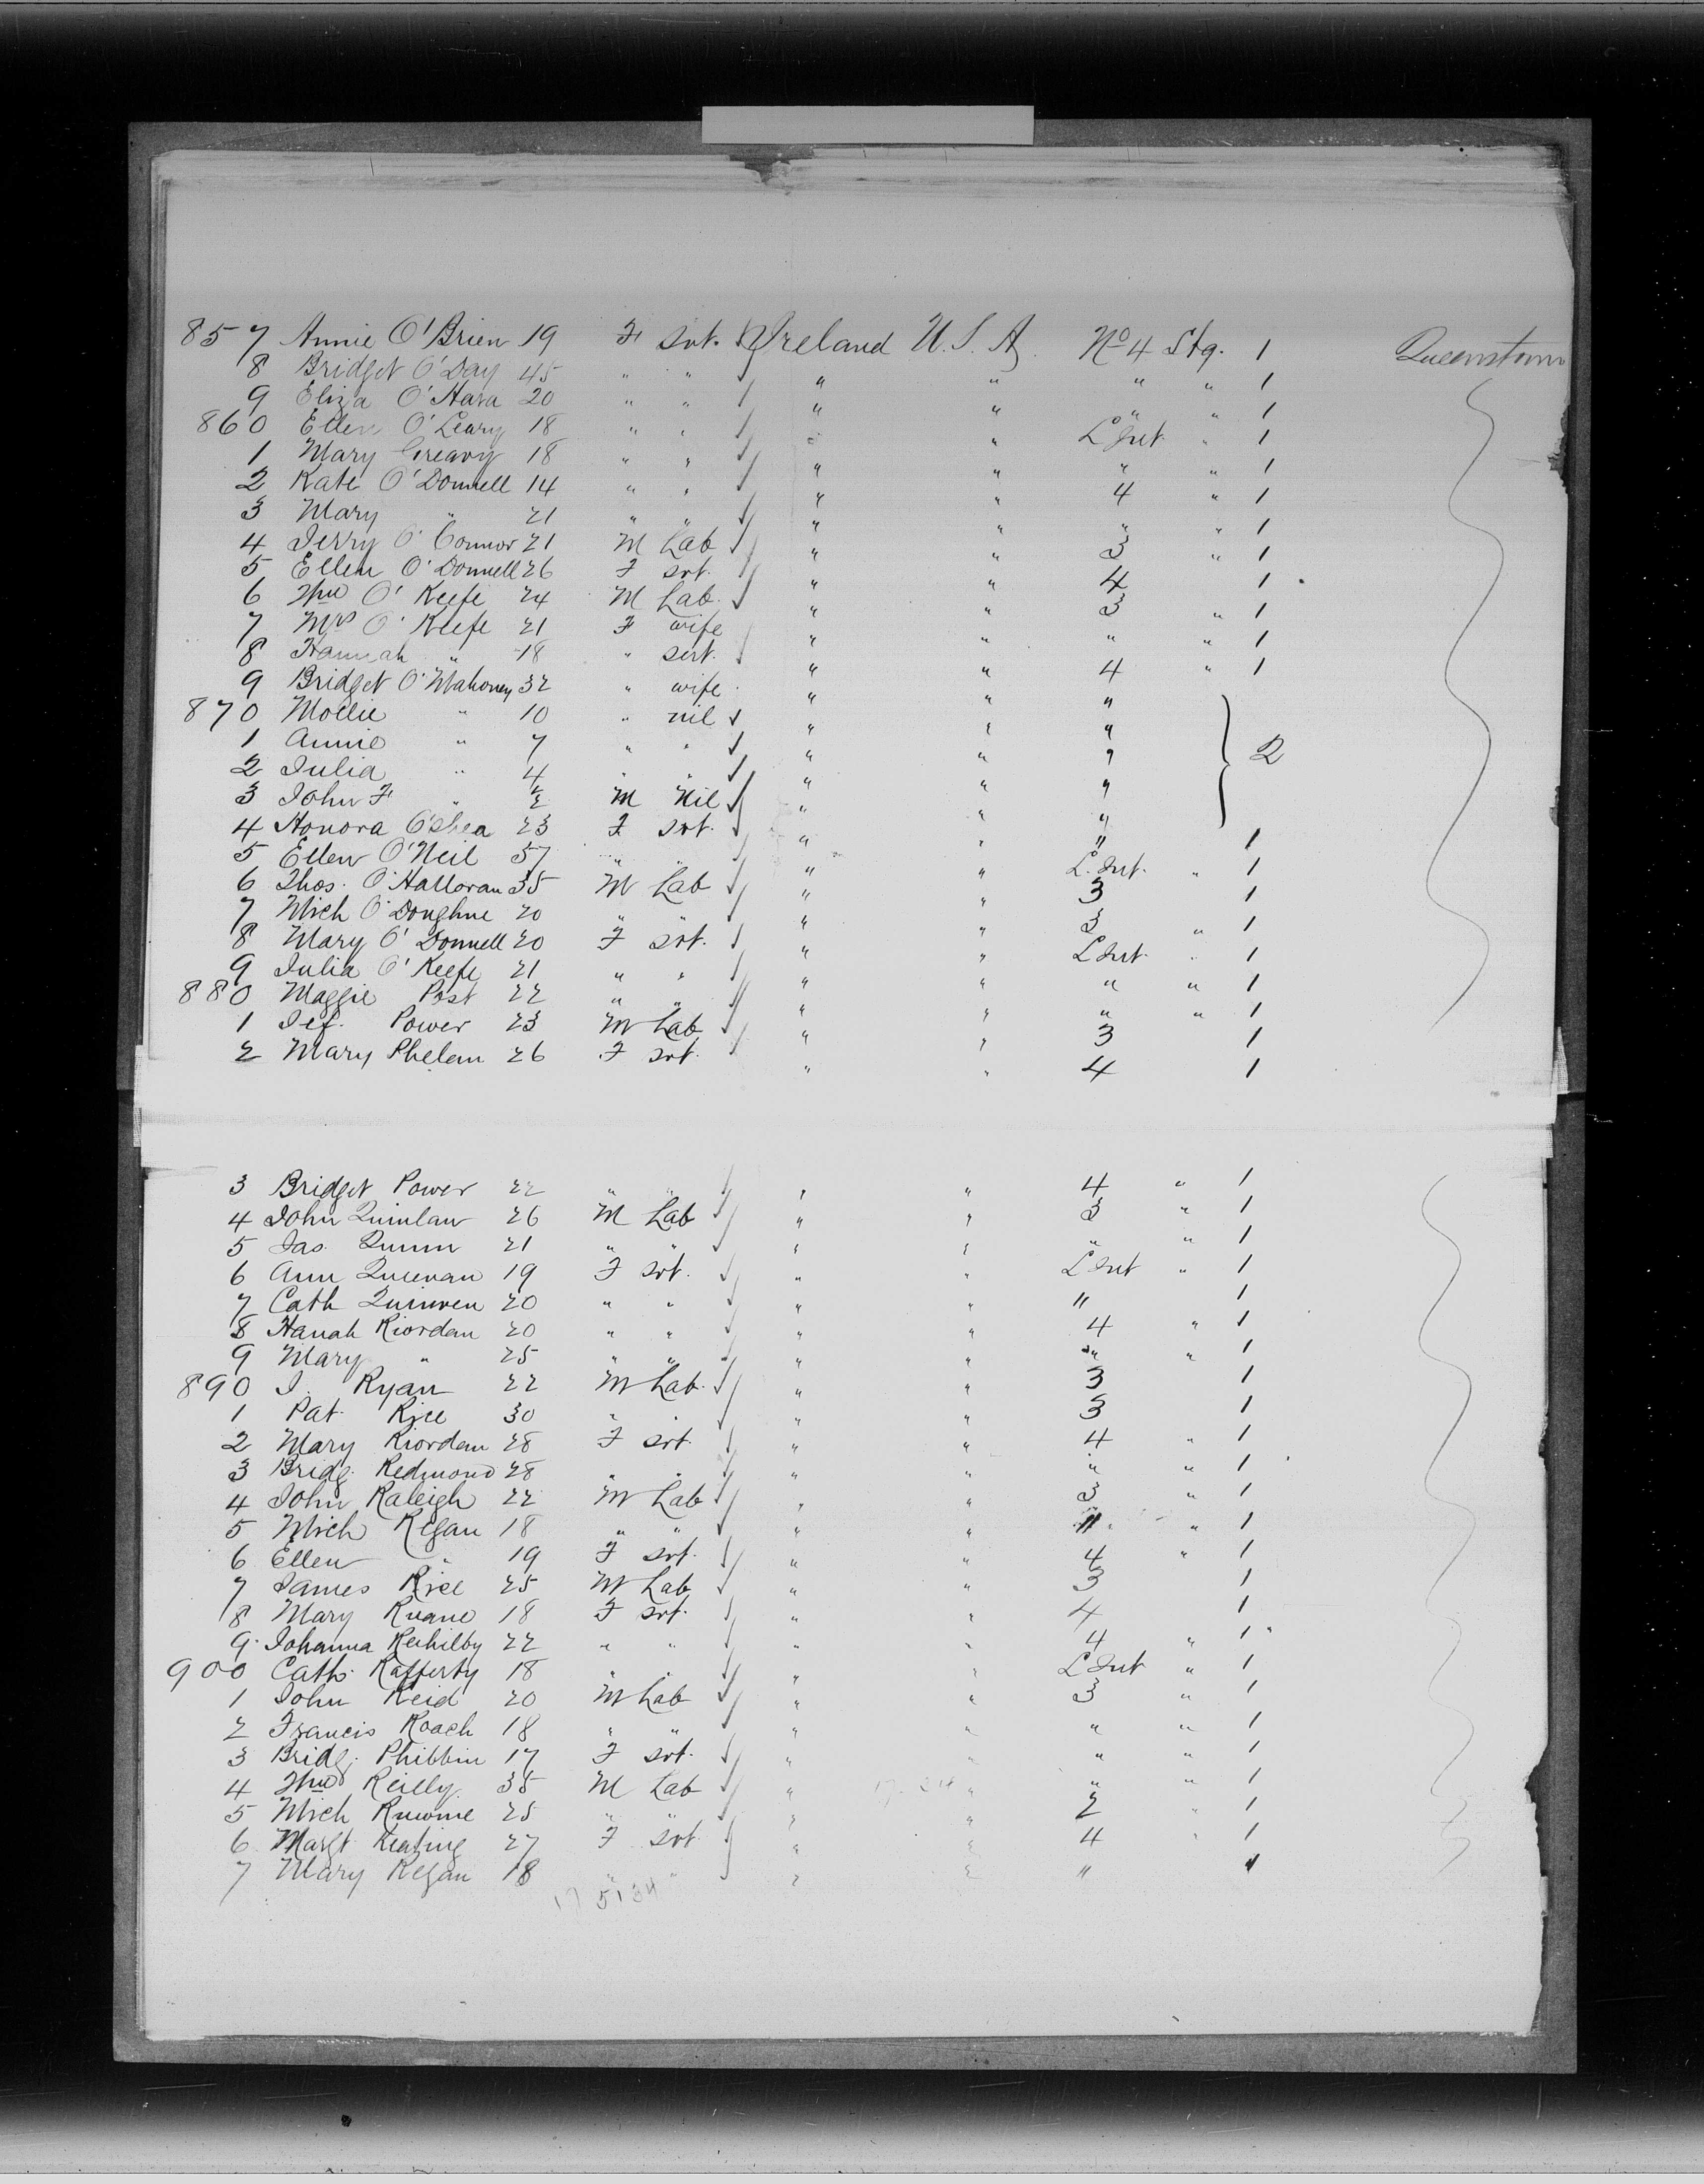 857 Annie O'Brien 19 F Svt. Ireland U.S.A. No 4 Stg. 1 Queenstown
8 Bridget O'Day 45 " " " " " " 1
9 Eliza O'Hara 20 " " " " " " 1
860 Ellen O'Leary 18 " " " " L Int. " 1
1 Mary Creavy 18 " " " " " " 1
2 Kate O'Donnell 14 " " " " 4 " 1
3 Mary " 21 " " " " " " 1
4 Jerry O'Connor 21 M Lab " " 3 " 1
5 Ellen O'Donnell 26 F svt. " " 4 1
6 Wm O'Keefe 24 M Lab. " " 3 " 1
7 Mrs O'Keefe 21 F wife " " " " 1
8 Hannah " 18 " sert. " " 4 " 1
9 Bridget O'Mahoney 32 " wife " " "
870 Mollie " 10 " nil " " "
1 Annie " 7 " " " " " 2
2 Julia " 4 " " " " "
3 John F " ½ M Nil " " "
4 Honora O'Shea 23 F svt. " " " 1
5 Ellen O'Neil 57 " " " " L. Int. " 1
6 Thos. O'Halloran 35 M Lab " " 3 1
7 Mich O'Donghue 20 " " " " 3 " 1
8 Mary O'Donnell 20 F svt. " " L Int. " 1
9 Julia O'Keefe 21 " " " " " " 1
880 Maggie Post 22 " " " " " " 1
1 Jef. Power 23 M Lab " " 3 1
2 Mary Phelan 26 F svt. " " 4 1
3 Bridget Power 22 " " " " 4 " 1
4 John Quinlan 26 M Lab " " 3 " 1
5 Jas. Quinn 21 " " " " " " 1
6 Ann 19 F svt. " " L Int " 1
7 Cath 20 " " " " " 1
8 Hanah Riordan 20 " " " " 4 " 1
9 Mary " 25 " " " " " " 1
890 J. Ryan 22 M Lab. " " 3 1
1 Pat. Rice 30 " " " " 3 1
2 Mary Riordan 28 F svt. " " 4 " 1
3 Bridg. Redmond 28 " " " " " " 1
4 John Raleigh 22 M Lab " " 3 " 1
5 Mich Regan 18 " " " " " " 1
6 Ellen " 19 F svt. " " 4 " 1
7 James Rice 25 M Lab " " 3 1
8 Mary Ruane 18 F svt. " " 4 1
9 Johanna 22 " " " " 4 " 1
900 Cath. Rafferty 18 " " " " L Int " 1
1 John Reid 20 M Lab " " 3 " 1
2 Francis Roach 18 " " " " " " 1
3 Bridg. Phibbin 17 F svt. " " " " 1
4 Wm Reilly. 35 M Lab " " " " 1
5 Mich 25 " " " " 2 " 1
6 Margt. Keating 27 F svt. " " 4 " 1
7 Mary Regan 18 " " " " " 1